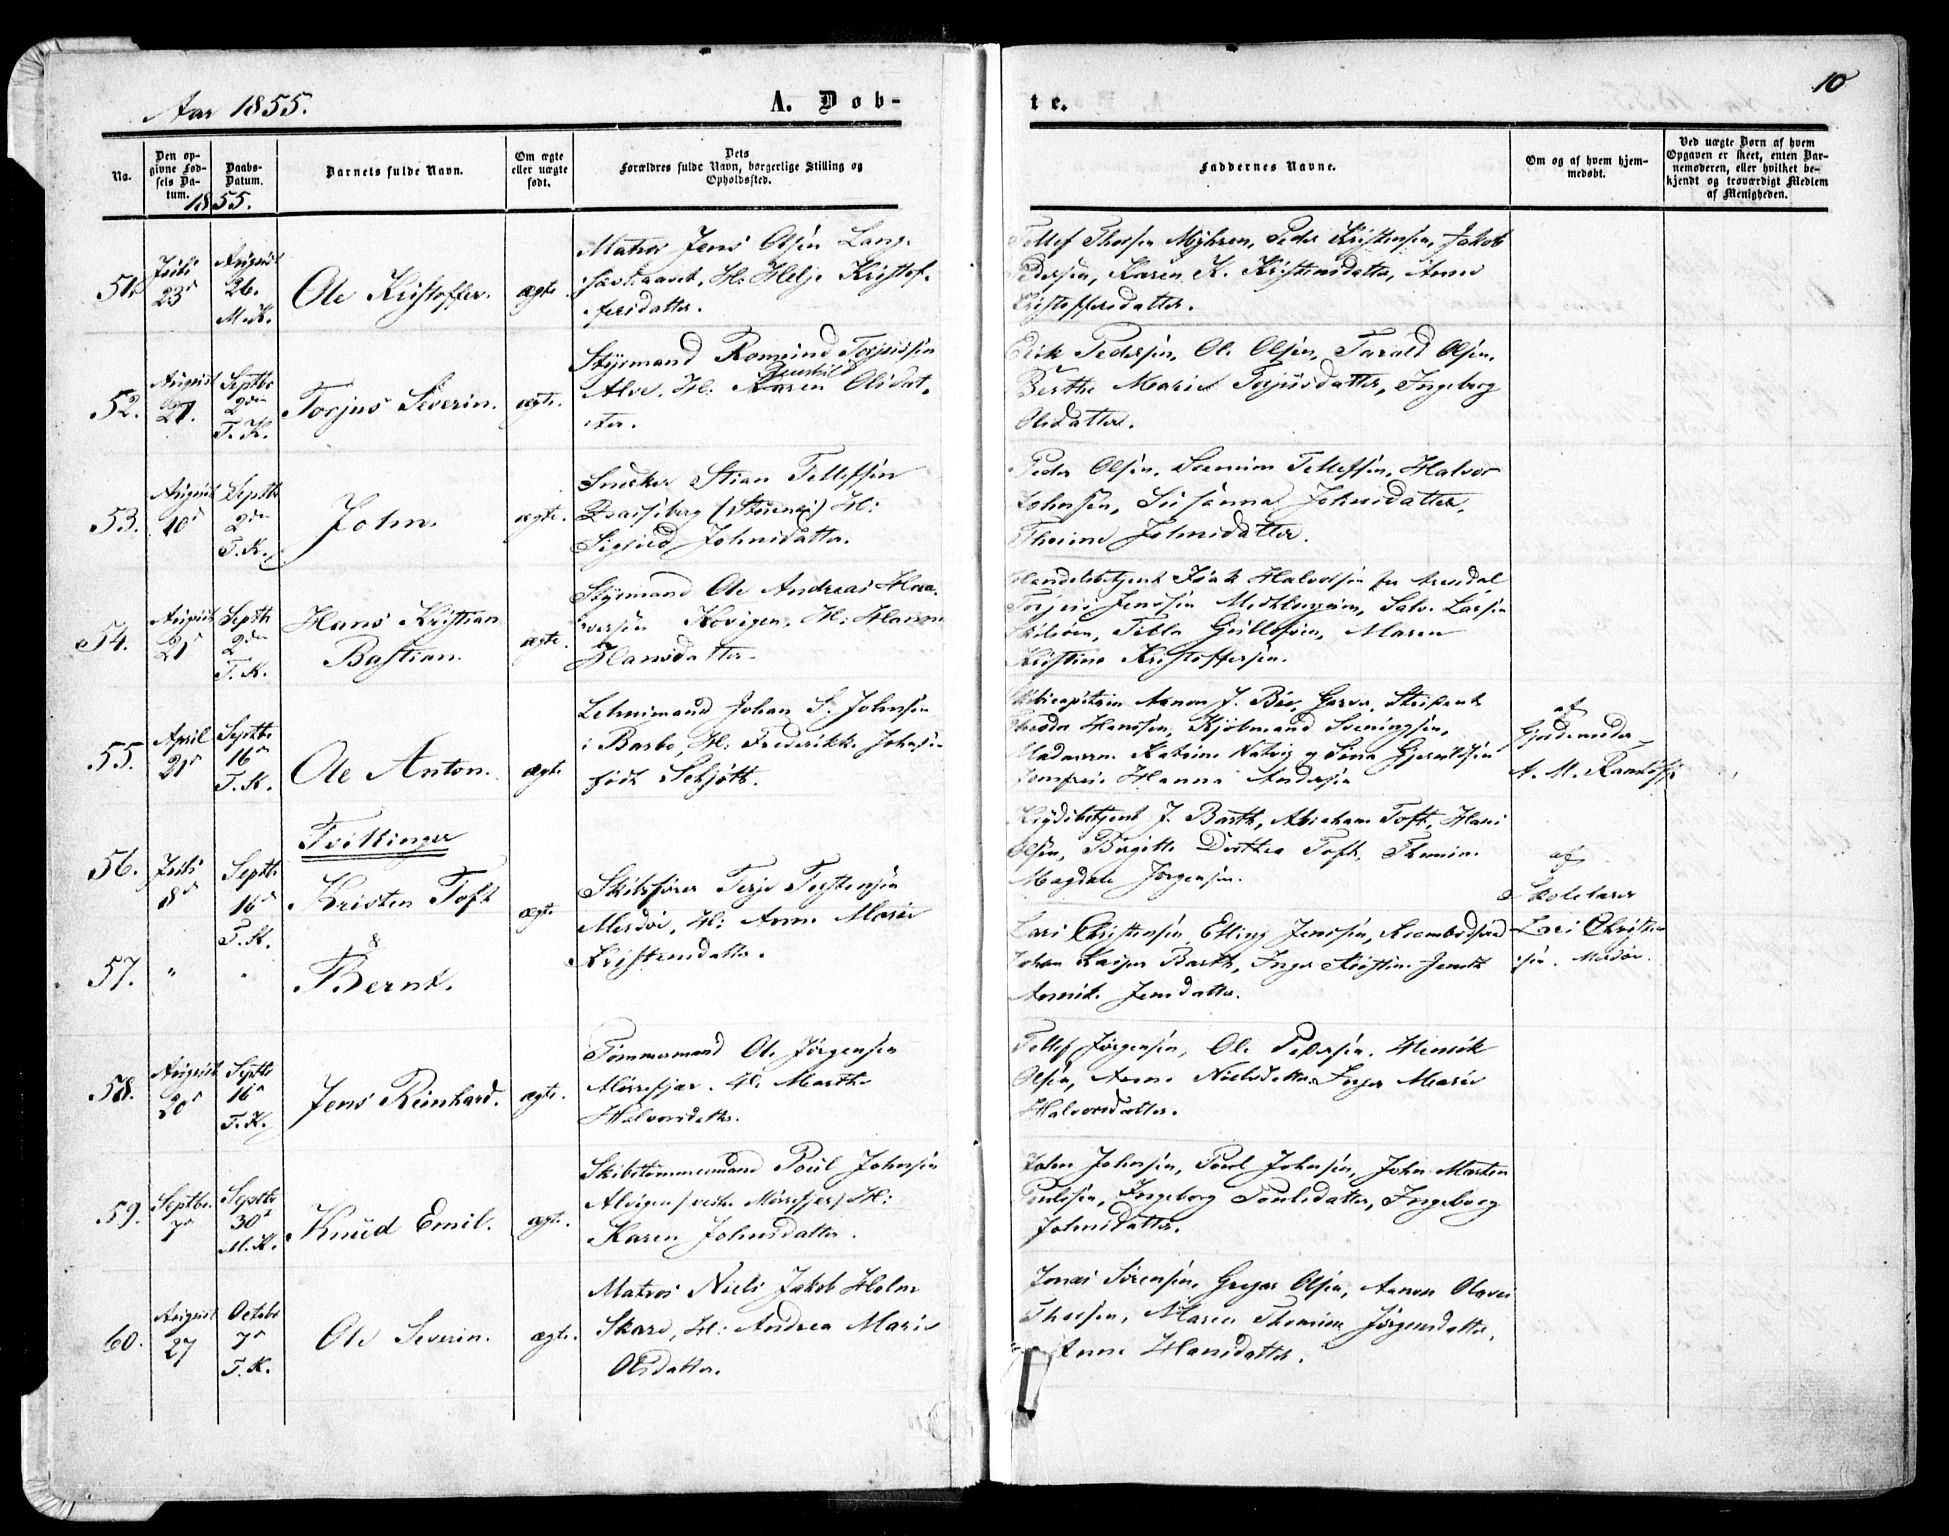 Aar 1855.
A. Døb-
te.
10
No.
Den op-
givne Fød-
sels Da-
tum.
Daabs-
Datum.
1855.
Barnets fulde Navn.
Om ægte
eller uægte
født.
Dets
Forældres fulde Navn, borgerlige Stilling og
Opholdssted.
Faddernes Navne.
Om og af hvem hjem-
medøbt.
Ved uægte Børn af hvem
Opgaven er skeet, enten Bar-
nemoderen, eller hvilket be-
kjendt og troværdigt Medlem
af Menigheden.
51.
Juli
23d
August
26.
M.K.
Ole Kristoffer.
ægte
Matros Jens Olsen Lang-
H: Helje Kristof-
fersdatter.
Tellef Thorsen Myhren, Peder Kristensen, Jakob
Pedersen, Karen K. Kristensdatter, Anne
Kristoffersdatter.
52.
August
27.
Septbr
2den
T.K.
Torjus Severin.
ægte.
Styrmand Romund Torjusen
Alve. H: Karen Olsdat-
ter.
Erik Pedersen, Ole Olsen, Tarald Olsen,
Berthe Marie Torjusdatter, Ingeborg
Olsdatter.
53.
August
10d
Septbr
2den
T.K.
John.
ægte.
Snedker Stian Tellefsen
H:
Sigrid Johnsdatter.
Peder Olsen, Tellefsen, Halvor
Johnsen, Susanna Johnsdatter,
Thorine Johnsdatter.
54.
August
21d
Septbr
2den
T.K.
Hans Kristian
Bastian.
ægte.
Styrmand Ole Andreas Haa-
versen Kovigen, H: Hanne
Hansdatter.
Handelsbetjent Isak Halvorsen fra Arendal
Torjus Jensen Salve Larsen
Maren
Kristine Kristoffersen.
55.
April
21d
Septbr
16d
T.K.
Ole Anton.
ægte
Lehnsmand Johan S. Johnsen
i Barbo, H: Frederikke Johnsen
født Schjøtt.
Hansen,
Madamm. Katrine Natvig og
Hanna Andersen
af
Gjordemoder
A. M.
56.
Juli
8d
Septbr
16d
T.K.
Tvillinger
Kristen Toft
&
ægte
Skibsfører Terje Terjesen
Merdø, H: Anne Marie
Kristensdatter.
J. Barth, Abraham Toft, Hans
Olsen, Birgitte Dorthea Toft, Thomine
Magdale Jørgensen.
af
Skolelærer
Lars Christen-
sen. Merdø.
57.
"
"
Bernt.
Lars Christensen, Elling Jensen,
Johan Kasper Barth, Inger Kristine
Jensdatter.
58.
August
20d
Septbr
16d
T.K.
Jens Reinhard.
ægte.
Tømmermand Ole Jørgensen
Nørrefjær. H: Marthe
Halvorsdatter.
Tellef Jørgensen, Ole Pedersen, Henrik
Olsen, Anne Nielsdatter, Inger Marie
Halvorsdatter.
59.
Septbr.
7d
Septbr
30d
M.K.
Knud Emil.
ægte.
Skibstømmermand Poul Johnsen
Alvigen / H:
Karen Johnsdatter.
John Johnsen, Poul Johnsen, John Morten
Poulsen, Ingeborg Poulsdatter, Ingeborg
Johnsdatter.
60.
August
27
Octobr
7d
T.K.
Ole Severin.
ægte.
Matros Niels Jakob Holm
Skare, H: Andrea Marie
Olsdatter.
Jonas Sørensen, Gregar Olsen,
Thorsen, Maren Thomine Jørgensdatter,
Anne Hansdatter.